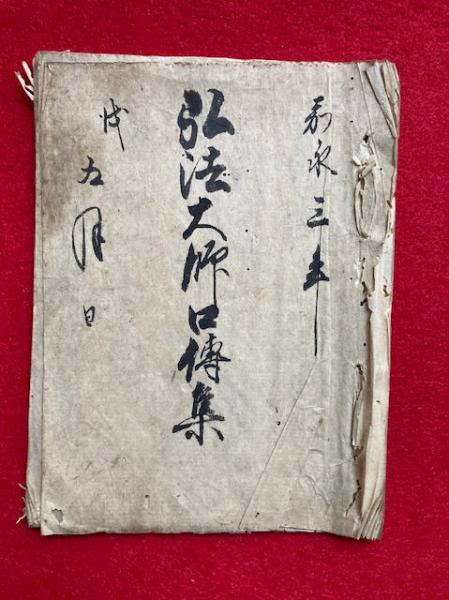 嘉永三年
弘法大師口傳集
戌五月日